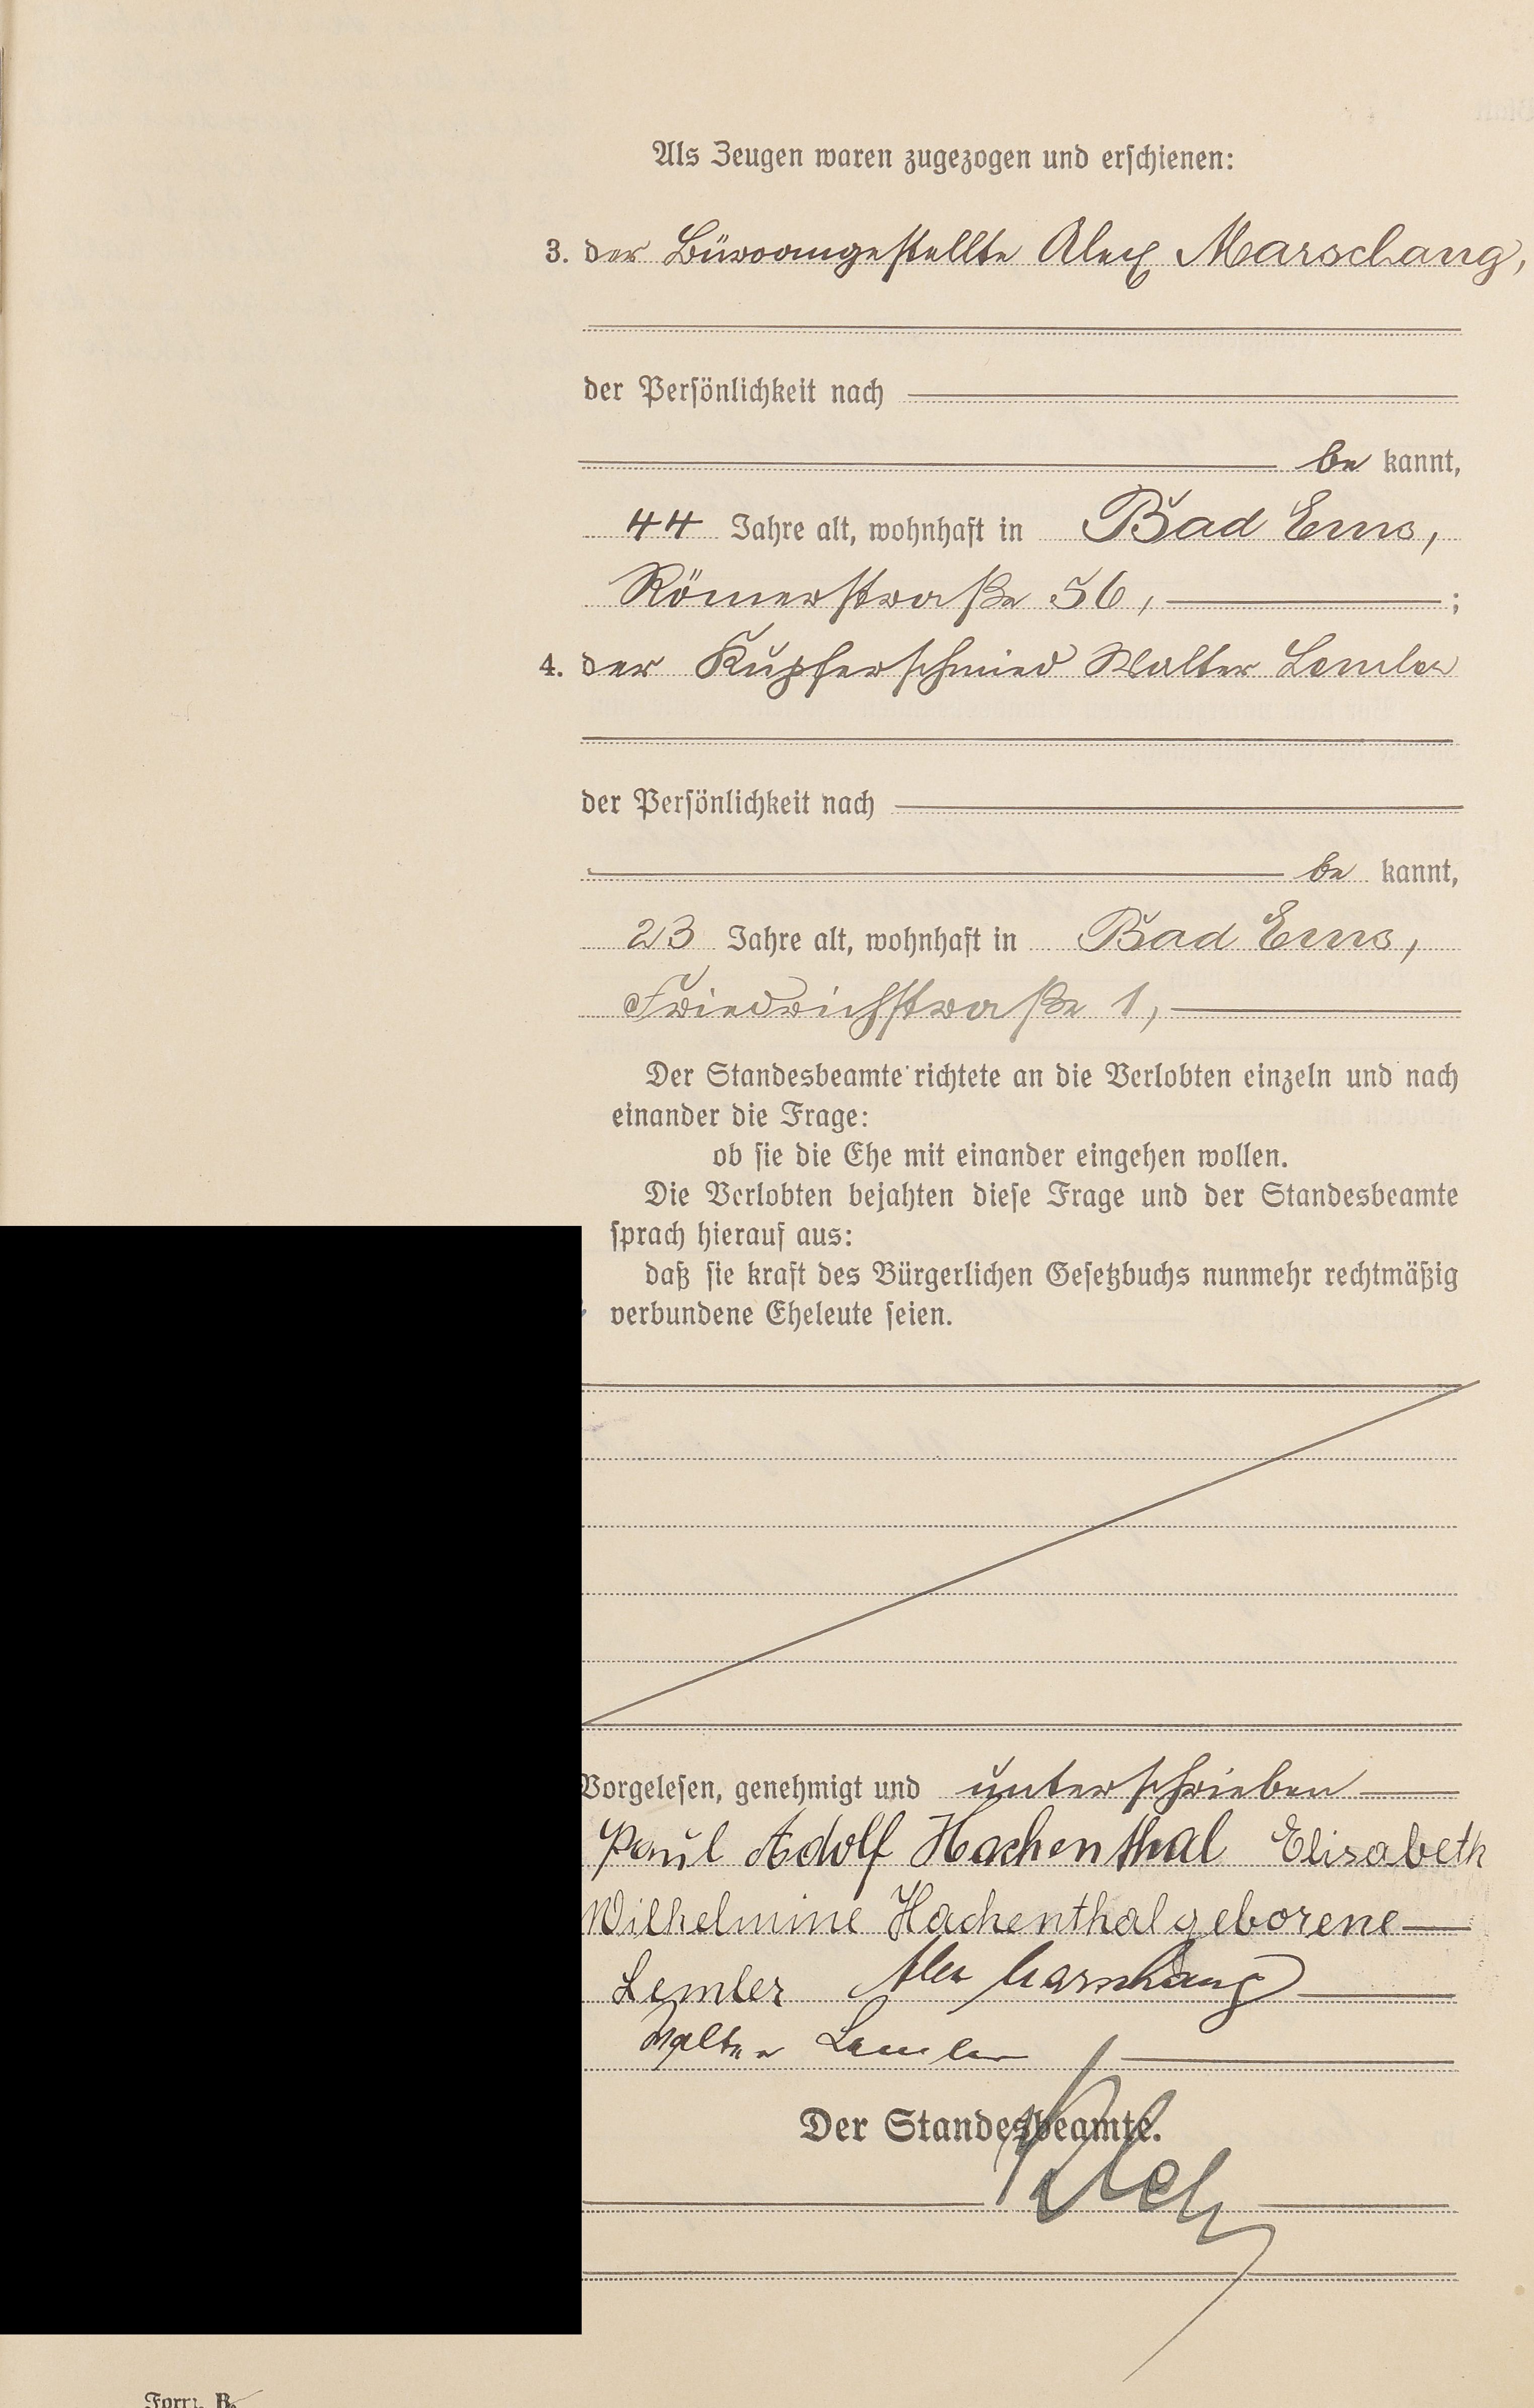 Als Zeugen waren zugezogen und erschienen:
3. der Büroangestellte Alex Marschang,
der Persönlichkeit nach
be kannt,
44 Jahre alt, wohnhaft in Bad Ems,
Römerstraße 56, ;
4. der Kupferschmied Walter Lemler
der Persönlichkeit nach
be kannt,
23 Jahre alt, wohnhaft in Bad Ems,
Friedrichstraße 1,
Der Standesbeamte richtete an die Verlobten einzeln und nach
einander die Frage:
ob sie die Ehe mit einander eingehen wollen.
Die Verlobten bejahten diese Frage und der Standesbeamte
sprach hierauf aus:
daß sie kraft des Bürgerlichen Gesetzbuchs nunmehr rechtmäßig
verbundene Eheleute seien.
Vorgelesen, genehmigt und unterschrieben
Paul Adolf Hachenthal Elisabeth
Wilhelmine Hachenthal geborene
Lemler Alex Marschang
Walter Lemler
Der Standesbeamte.
Form. B.